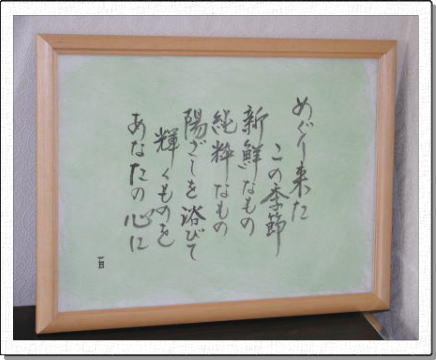 めぐり来た
この季節
新鮮なもの
純粋なもの
陽ざしを浴びて
輝くものを
あなたの心に